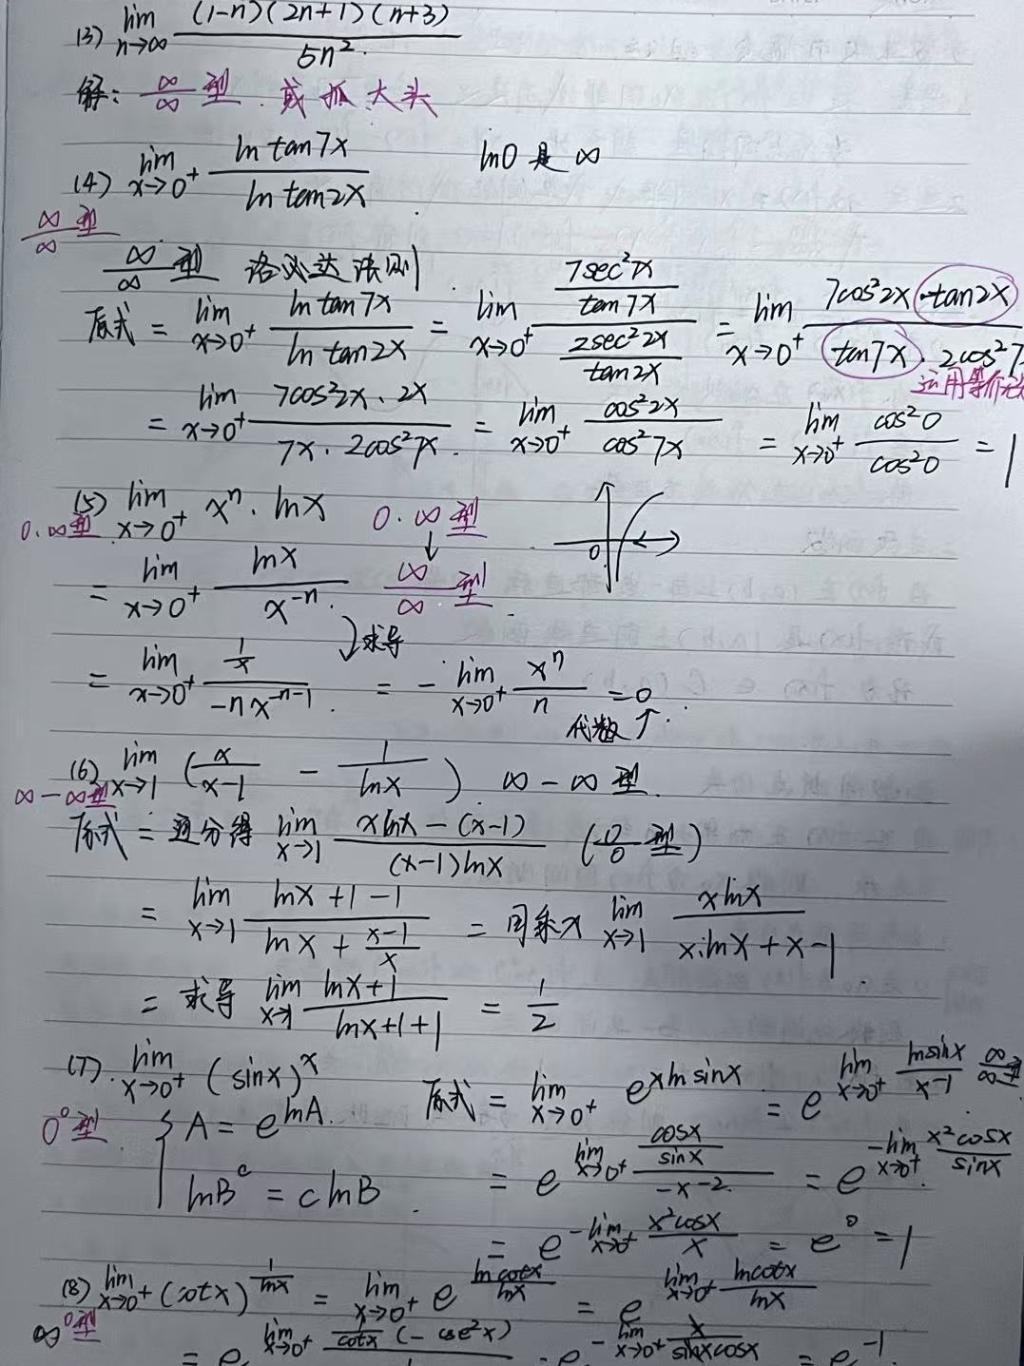 (3) lim n→∞ (1-n)(2n+1)(n+3) / 5n²
解: ∞/∞ 型. 或抓大头
(4) lim x→0⁺ ln tan7x / ln tan2x   ln0 是 ∞
∞/∞ 型
∞/∞ 型 洛必达法则
原式 = lim x→0⁺ ln tan7x / ln tan2x = lim x→0⁺ (7sec²7x / tan7x) / (2sec²2x / tan2x) = lim x→0⁺ 7cos²2x · tan2x / tan7x · 2cos²7
运用等价无
= lim x→0⁺ 7cos²2x · 2x / 7x · 2cos²7x = lim x→0⁺ cos²2x / cos²7x = lim x→0⁺ cos²0 / cos²0 = 1
(5) lim x→0⁺ xⁿ · lnx   0·∞型
0·∞型
0
= lim x→0⁺ lnx / x⁻ⁿ   ↓ ∞/∞ 型
求导
= lim x→0⁺ (1/x) / -nx⁻ⁿ⁻¹ = - lim x→0⁺ xⁿ / n = 0
代数↑
(6) lim x→1 (x/(x-1) - 1/lnx)   ∞-∞ 型.
∞-∞型
原式 = 通分得 lim x→1 xlnx-(x-1) / (x-1)lnx (0/0 型)
= lim x→1 lnx+1-1 / lnx + (x-1)/x = 同乘x lim x→1 xlnx / x·lnx+x-1
= 求导 lim x→1 lnx+1 / lnx+1+1 = 1/2
(7). lim x→0⁺ (sinx)ˣ   原式 = lim x→0⁺ e^(xlnsinx) = e^(lim x→0⁺ lnsinx / x⁻¹) ∞/∞型
0⁰型. { A = e^(lnA)
lnBᶜ = c lnB   = e^(lim x→0⁺ (cosx/sinx) / -x⁻²) = e^(-lim x→0⁺ x²cosx / sinx)
= e^(-lim x→0⁺ x²cosx / x) = e⁰ = 1
(8) lim x→0⁺ (cotx)^(1/lnx) = lim x→0⁺ e^(lncotx / lnx) = e^(lim x→0⁺ lncotx / lnx)
∞⁰型
= e^(lim x→0⁺ 1/cotx (-csc²x)) = e^(-lim x→0⁺ x / sinxcosx) = e⁻¹